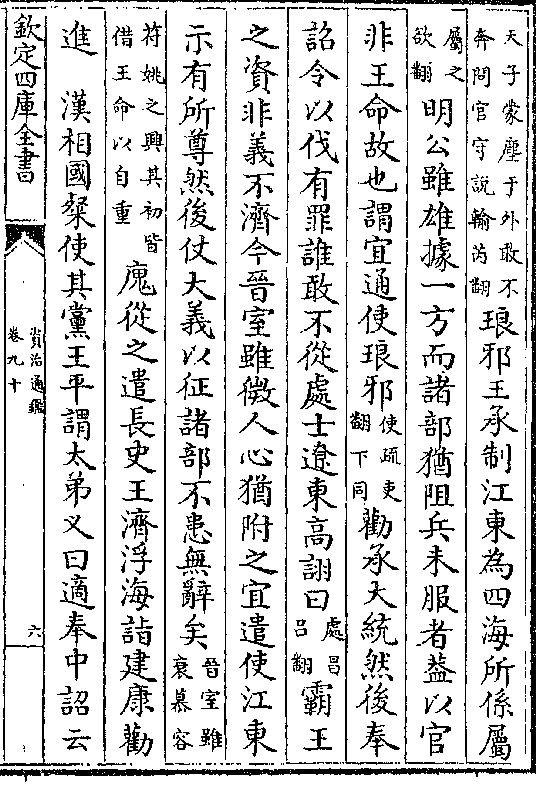 天子蒙塵于外敢不
奔問官守説輸芮翻
琅邪王承制江東為四海所係屬
屬之
欲翻
明公雖雄據一方而諸部猶阻兵未服者葢以官
非王命故也謂宜通使琅邪
使疏吏
翻下同
勸承大統然後奉
詔令以伐有罪誰敢不從處士遼東高詡曰
處昌
呂翻
霸王
之資非義不濟今晉室雖微人心猶附之宜遣使江東
示有所尊然後仗大義以征諸部不患無辭矣
晉室雖
衰慕容
苻姚之興其初皆
借王命以自重
廆從之遣長史王濟浮海詣建康勸
進
漢相國粲使其黨王平謂太弟乂曰適奉中詔云
欽定四庫全書
資治通鑑
卷九十
六